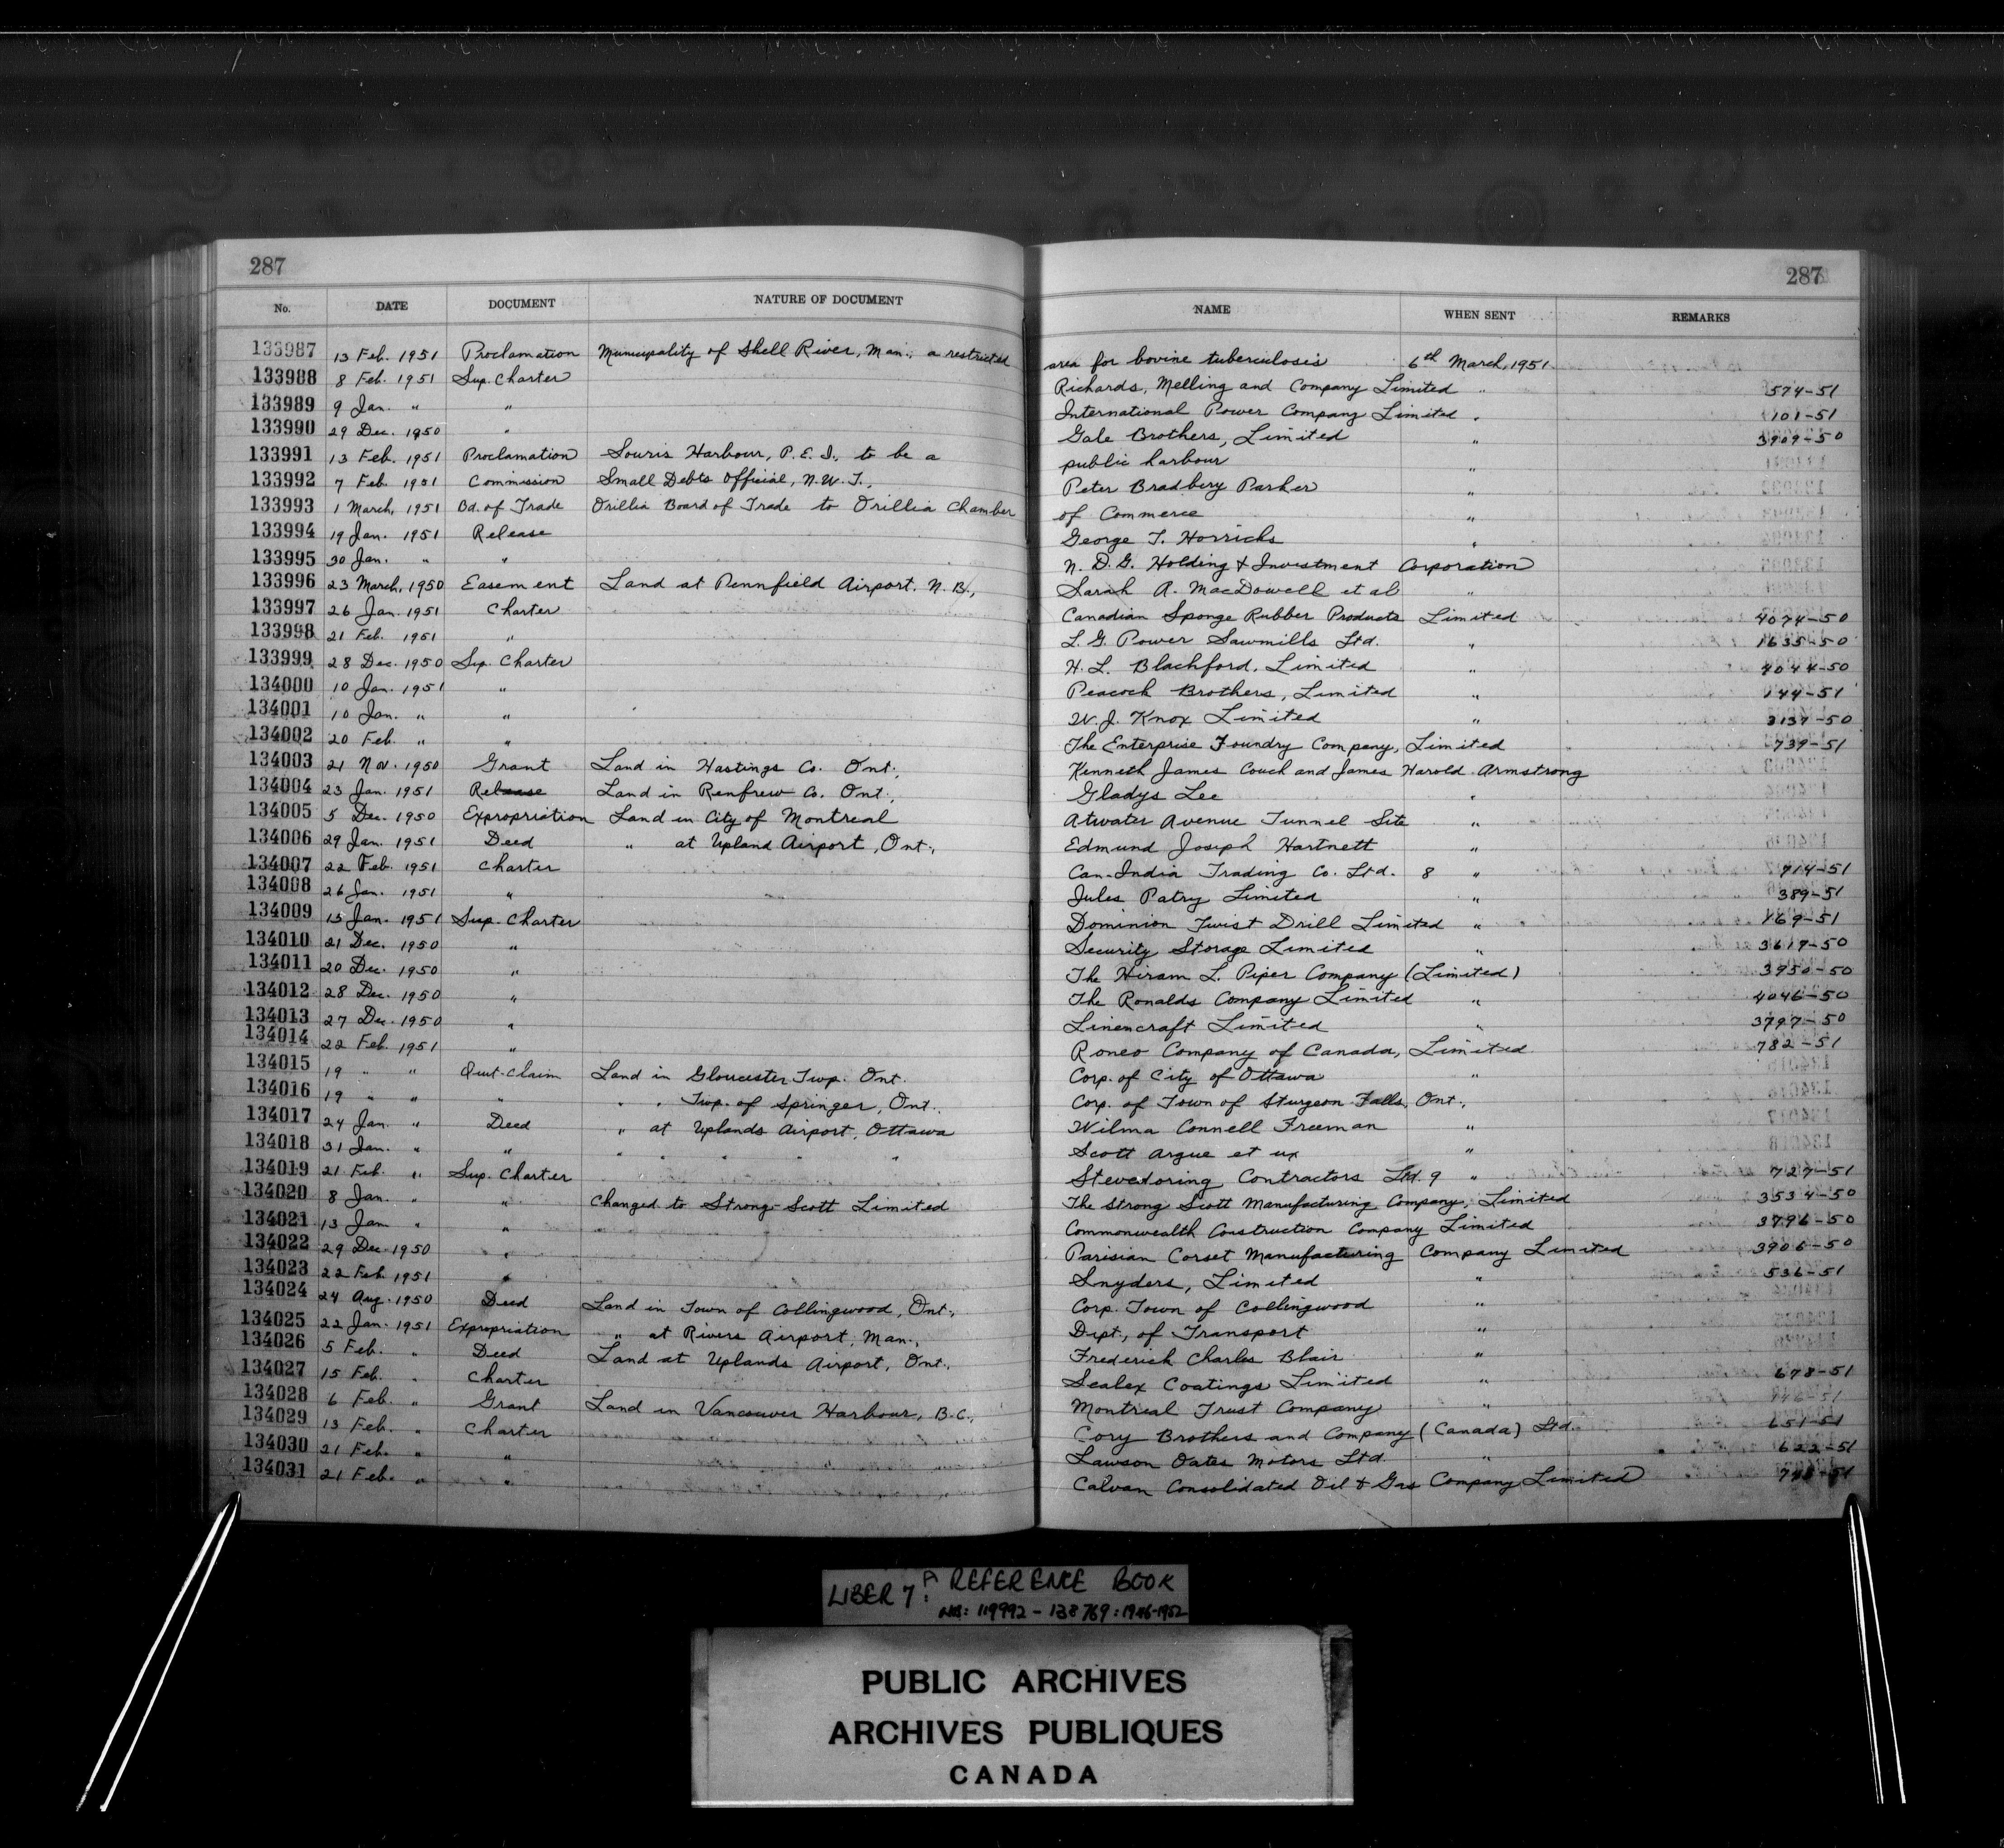 287 287
No. DATE DOCUMENT NATURE OF DOCUMENT NAME WHEN SENT REMARKS
133987 13 Feb. 1951 Proclamation Municipality of Shell River, Man., a restricted area for bovine tuberculosis 6th March, 1951
133988 8 Feb. 1951 Sup. Charter Richards, Melling and Company Limited " 574-51
133989 9 Jan. " " International Power Company Limited " 101-51
133990 29 Dec. 1950 " Gale Brothers, Limited " 3909-50
133991 13 Feb. 1951 Proclamation Souris Harbour, P.E.I., to be a public harbour "
133992 7 Feb. 1951 Commission Small Debts Official, N.W.T., Peter Bradbery Parker "
133993 1 March, 1951 Bd. of Trade Orillia Board of Trade to Orillia Chamber of Commerce "
133994 19 Jan. 1951 Release George T. Horricks "
133995 30 Jan. " " N. D. G. Holding & Investment Corporation
133996 23 March, 1950 Easement Land at Pennfield Airport. N. B., Sarah A. MacDowell et al "
133997 26 Jan. 1951 Charter Canadian Sponge Rubber Products Limited 4074-50
133998 21 Feb. 1951 " L. G. Power Sawmills Ltd. " 1635-50
133999 28 Dec. 1950 Sup. Charter H. L. Blachford, Limited " 4044-50
134000 10 Jan. 1951 " Peacock Brothers, Limited " 144-51
134001 10 Jan. " " W. J. Knox Limited " 3137-50
134002 20 Feb. " " The Enterprise Foundry Company, Limited 739-51
134003 21 Nov. 1950 Grant Land in Hastings Co. Ont., Kenneth James Couch and James Harold Armstrong
134004 23 Jan. 1951 Release Land in Renfrew Co. Ont., Gladys Lee "
134005 5 Dec. 1950 Expropriation Land in City of Montreal Atwater Avenue Tunnel Site "
134006 29 Jan. 1951 Deed " at Upland Airport, Ont., Edmund Joseph Hartnett "
134007 22 Feb. 1951 Charter Can-India Trading Co. Ltd. 8 " 714-51
134008 26 Jan. 1951 " Jules Patry Limited " 389-51
134009 15 Jan. 1951 Sup. Charter Dominion Twist Drill Limited " 169-51
134010 21 Dec. 1950 " Security Storage Limited " 3617-50
134011 20 Dec. 1950 " The Hiram L. Piper Company (Limited) 3950-50
134012 28 Dec. 1950 " The Ronalds Company Limited " 4046-50
134013 27 Dec. 1950 " Linencraft Limited " 3797-50
134014 22 Feb. 1951 " Roneo Company of Canada, Limited 782-51
134015 19 " " Quit-Claim Land in Gloucester Twp. Ont. Corp. of City of Ottawa "
134016 19 " " " " " Twp. of Springer, Ont. Corp. of Town of Sturgeon Falls, Ont.,
134017 24 Jan. " Deed " at Uplands Airport, Ottawa Wilma Connell Freeman "
134018 31 Jan. " " " " " " Scott Argue et ux "
134019 21 Feb. " Sup. Charter Stevedoring Contractors Ltd. 9 " 727-51
134020 8 Jan. " " Changed to Strong-Scott Limited The Strong Scott Manufacturing Company, Limited 3534-50
134021 13 Jan " " Commonwealth Construction Company Limited 3796-50
134022 29 Dec. 1950 " Parisian Corset Manufacturing Company Limited 3906-50
134023 22 Feb. 1951 " Snyders, Limited " 536-51
134024 24 Aug. 1950 Deed Land in Town of Collingwood, Ont., Corp. Town of Collingwood "
134025 22 Jan. 1951 Expropriation " at Rivers Airport, Man., Dept., of Transport "
134026 5 Feb. " Deed Land at Uplands Airport, Ont., Frederick Charles Blair "
134027 15 Feb. " Charter Sealex Coatings Limited " 678-51
134028 6 Feb. " Grant Land in Vancouver Harbour, B.C., Montreal Trust Company "
134029 13 Feb. " Charter Cory Brothers and Company (Canada) Ltd. 651-51
134030 21 Feb. " " Lawson Oates Motors Ltd. " 622-51
134031 21 Feb. " " Calvan Consolidated Oil & Gas Company Limited
LIBER 7A: REFERENCE BOOK
NOS: 119992 - 138769: 1946-1952
PUBLIC ARCHIVES
ARCHIVES PUBLIQUES
CANADA